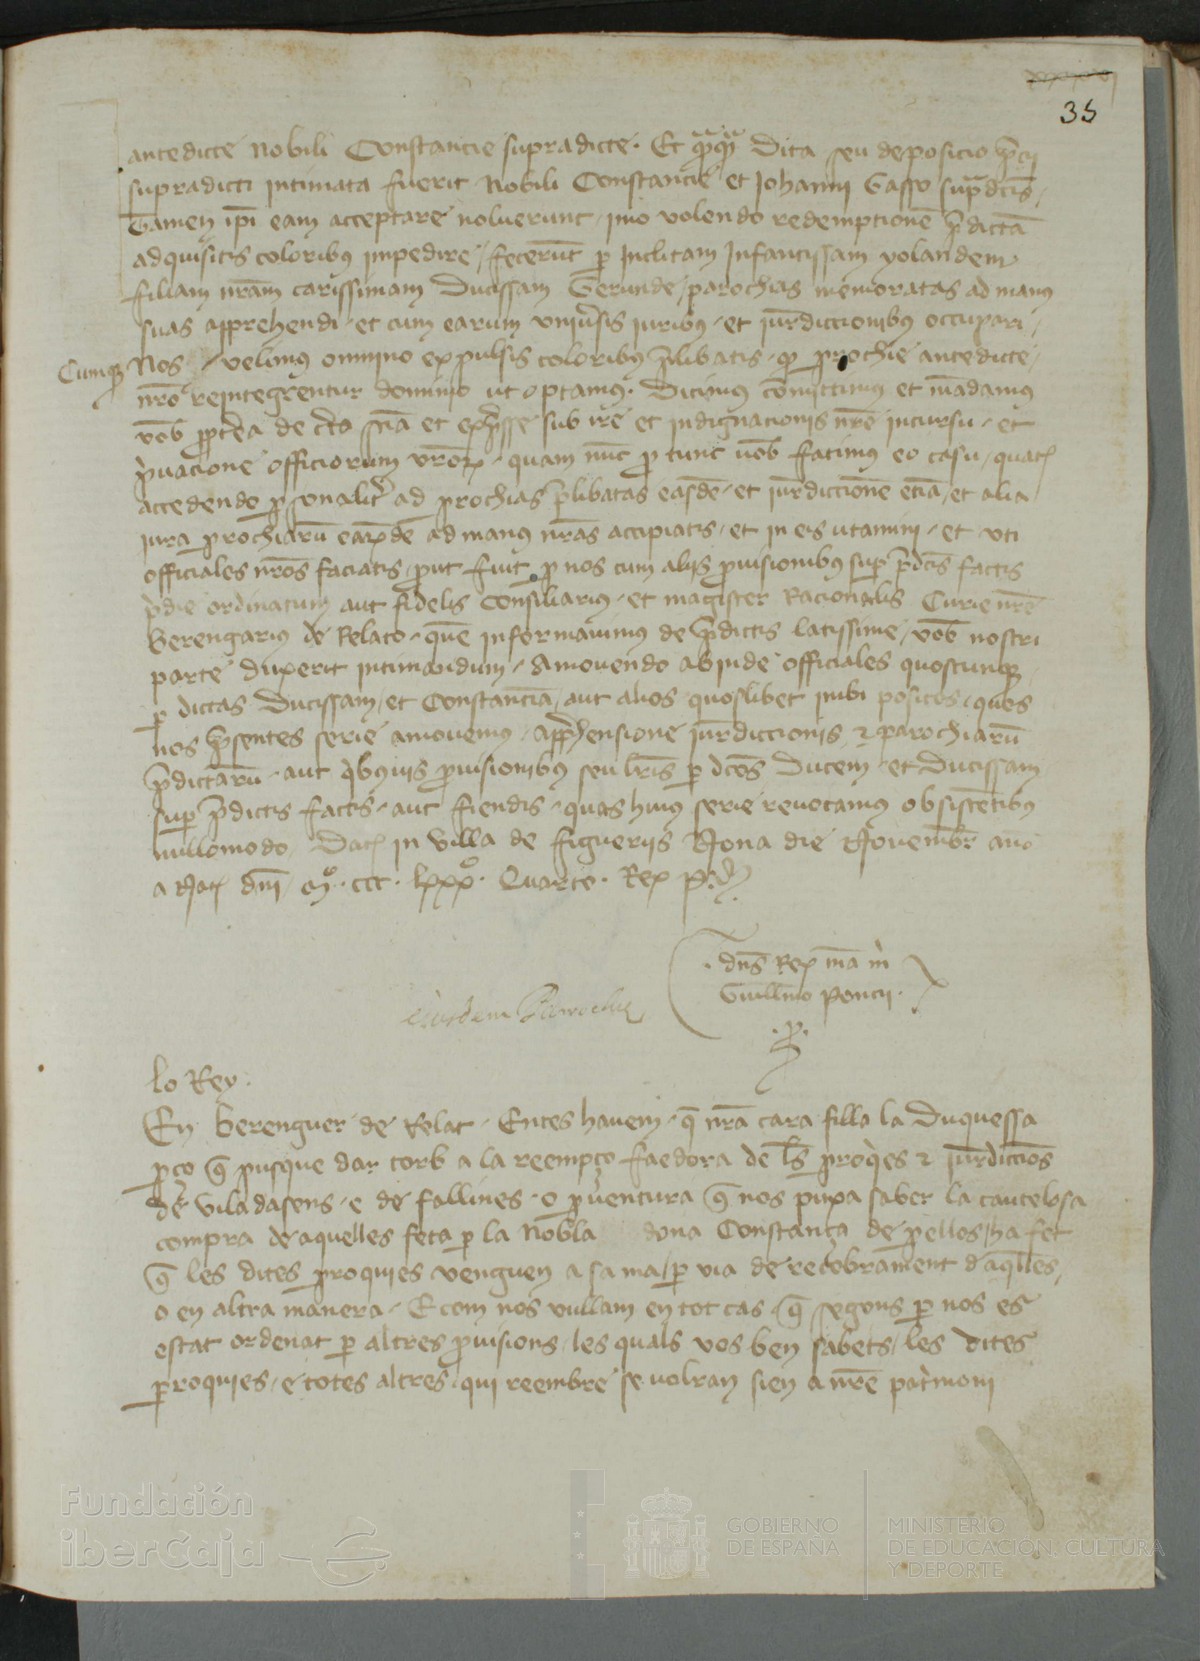 35
antedicte Nobili Constancie supradicte. Et q̃q̃ Dita seu deposicio p̃cij
supradicti intimata fuerit Nobili Constancie et Johanni Gasso sup̃dc̃is,
Tamen ip̃i eam acceptare noluerunt, imo volendo redemptionẽ p̃dictã
adquisitis coloribus impedire, fecerũt p Inclitam Infantissam yolandem
filiam nr̃am carissimam Ducissam Gerunde, parochias memoratas ad manus
suas apprehendi et cum earum uniṽsis iuribus et iur̃diccionibus occupari,
Cumq̃ Nos velimus omnino expulsis coloribus p̃libatis q̃ prochie antedicte,
nr̃o reintegrentur dominio ut optamus. Dicimus com̃ittimus et mãdamus
vob̃ ppt̃ea de c̃ta sc̃ia et exp̃sse sub ire et indignacionis nr̃e incursu et
p̃uacione officiorum vr̃orũ quam nũc p tunc uob̃ facimus eo casu, quat̃
accedendo p̱sonalit̃ ad prochias p̃libatas easdẽ et iur̃diccionẽ etiã, et alia
iura prochiarũ earũdẽ ad manus nr̃as accipiatis, et in eis utamini et uti
officiales nr̃os faciatis, prout fuit p nos cum alijs prouisionibus sup p̃dc̃is factis
p̃die ordinatum aut fidelis Consiliarius et magister Racionalis Curie nr̃e
Berengarius de Relato quẽ informauimus de p̃dictis latissime, vob̃ nostri
parte duxerit intimandum, Amouendo abinde officiales quoscunq̃
p dictas Ducissam, et Constanciã, aut alios quoslibet inibi positos, quos
nos p̃sentis serie amouemus, app̃hensione iur̃diccionis et parochiarũ
p̃dictarũ aut q̃busuis prouisionibus seu lr̃is p dc̃os Ducem et Ducissam
sup p̃dictis factis aut fiendis quas huius serie reuocamus obsistẽtibus
nullomodo. Dat̃ in Villa de figueriis Nona die Nouembr̃ año
a Nat̃ dñi Mº. ccc. lxxxº. Quarto. Rex P.
dñs Rex mã m̃
Guill̃mo Poncii.
.p.
eiusdem Parochie
lo Rey.
En berenguer de Relat, Entes hauem q̃ nr̃a cara filla la Duquessa
p ço q̃ pusque dar torb a la reempço faedora de l̃s proq̃es et iur̃diccios
de viladasens e de fallines o p uentura q̃ nos puxa saber la cautelosa
compra de aquelles feta p la Nobla dona Constança de perellos, ha fet
q̃ les dites proquies venguen a sa ma, p via de recobrament daq̃lles,
o en altra manera, E com nos vullam en tot cas q̃ segons p nos es
estat ordenat p altres prouisions, les quals vos ben sabets, les dites
parroquies, e totes altres qui reembre se volran sien a nr̃e pat̃moni
Fundación
iberCaja
GOBIERNO
DE ESPAÑA
MINISTERIO
DE EDUCACIÓN, CULTURA
Y DEPORTE